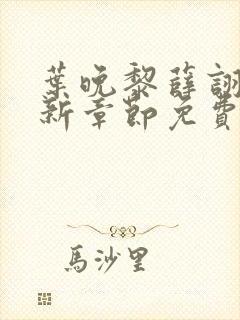 葉晚黎薛詡
新章節免費
馬沙里